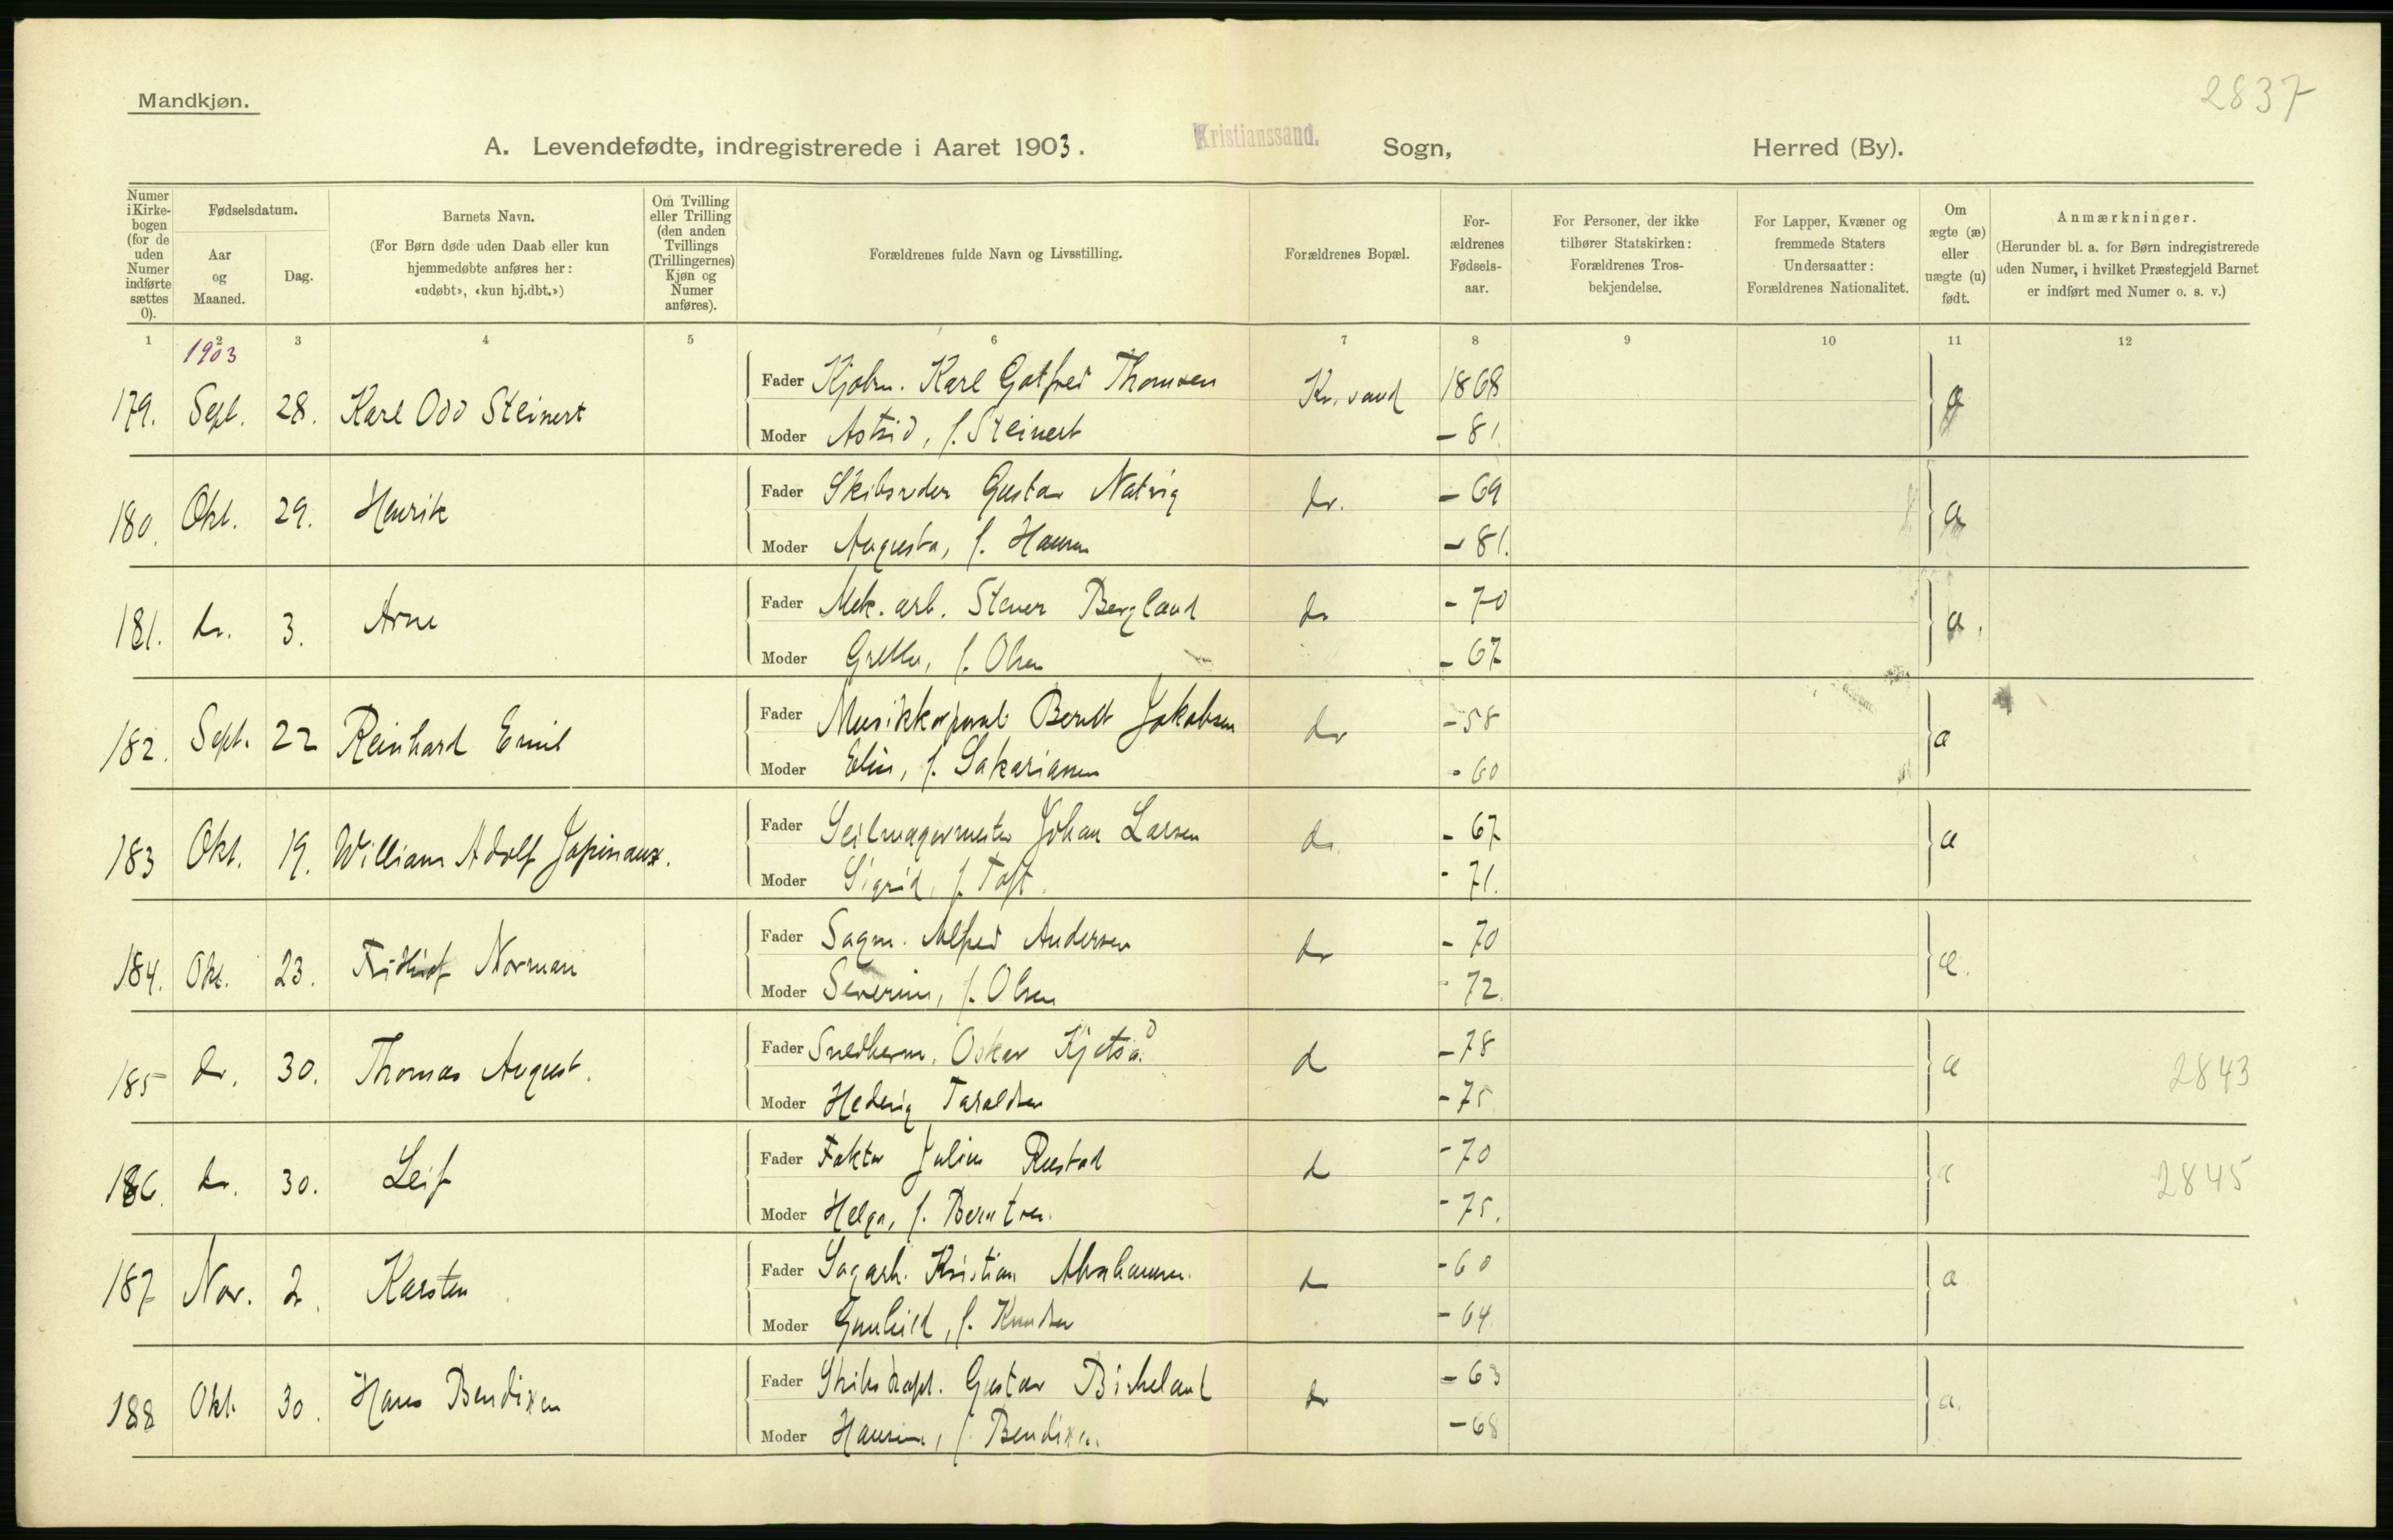 Mandkjøn.
2837
A. Levendefødte, indregistrerede i Aaret 1903. Kristianssand. Sogn, Herred (By).
Numer i Kirkebogen (for de uden Numer indførte sættes 0).
Fødselsdatum.
Aar og Maaned.
Dag.
Barnets Navn.
(For Børn døde uden Daab eller kun hjemmedøbte anføres her: «udøbt», «kun hj.dbt.»)
Om Tvilling eller Trilling (den anden Tvillings (Trillingernes) Kjøn og Numer anføres).
Forældrenes fulde Navn og Livsstilling.
Forældrenes Bopæl.
For-ældrenes Fødsels-aar.
For Personer, der ikke tilhører Statskirken: Forældrenes Tros-bekjendelse.
For Lapper, Kvæner og fremmede Staters Undersaatter: Forældrenes Nationalitet.
Om ægte (æ) eller uægte (u) født.
Anmærkninger.
(Herunder bl. a. for Børn indregistrerede uden Numer, i hvilket Præstegjeld Barnet er indført med Numer o. s. v.)
1 2 3 4 5 6 7 8 9 10 11 12
1903
179. Sept. 28. Karl Odd Steinert Fader Kjøbm. Karl Gotfred Thomsen Kr.sand 1868 æ
Moder Astrid, f. Steinert - 81.
180. Okt. 29. Henrik Fader Skibsreder Gustav Natvig do. - 69 æ
Moder Augusta, f. Hansen - 81.
181. do. 3. Arne Fader Mek. arb. Stener Bergland do - 70 æ.
Moder Grethe, f. Olsen - 67
182. Sept. 22 Reinhard Emil Fader Musikkorporal Berndt Jakobsen do - 58 æ
Moder Elin, f. Sakariasen - 60
183 Okt. 19. William Adolf Fader Seilmagermester Johan Larsen do. - 67 æ
Moder Sigrid, f. Toft. - 71.
184. Okt. 23. Fridthjof Norman Fader Sagm. Alfred Andersen do - 70 æ.
Moder Severine, f. Olsen - 72.
185 do. 30. Thomas August. Fader Snedkerm. Oskar Kjetså d - 78 æ 2843
Moder Hedvig Taraldsen - 75.
186. do. 30. Leif Fader Faktor Julius Rustad d - 70 æ 2845
Moder Helga, f. Berntsen. - 75.
187 Nov. 2. Karsten Fader Sagarb. Kristian Abrahamsen. d - 60 æ
Moder Gunhild, f. Knudsen - 64.
188 Okt. 30. Hans Bendixen Fader Skibskapt. Gustav Birkeland do - 63 æ.
Moder Hansine, f. Bendixen. - 68